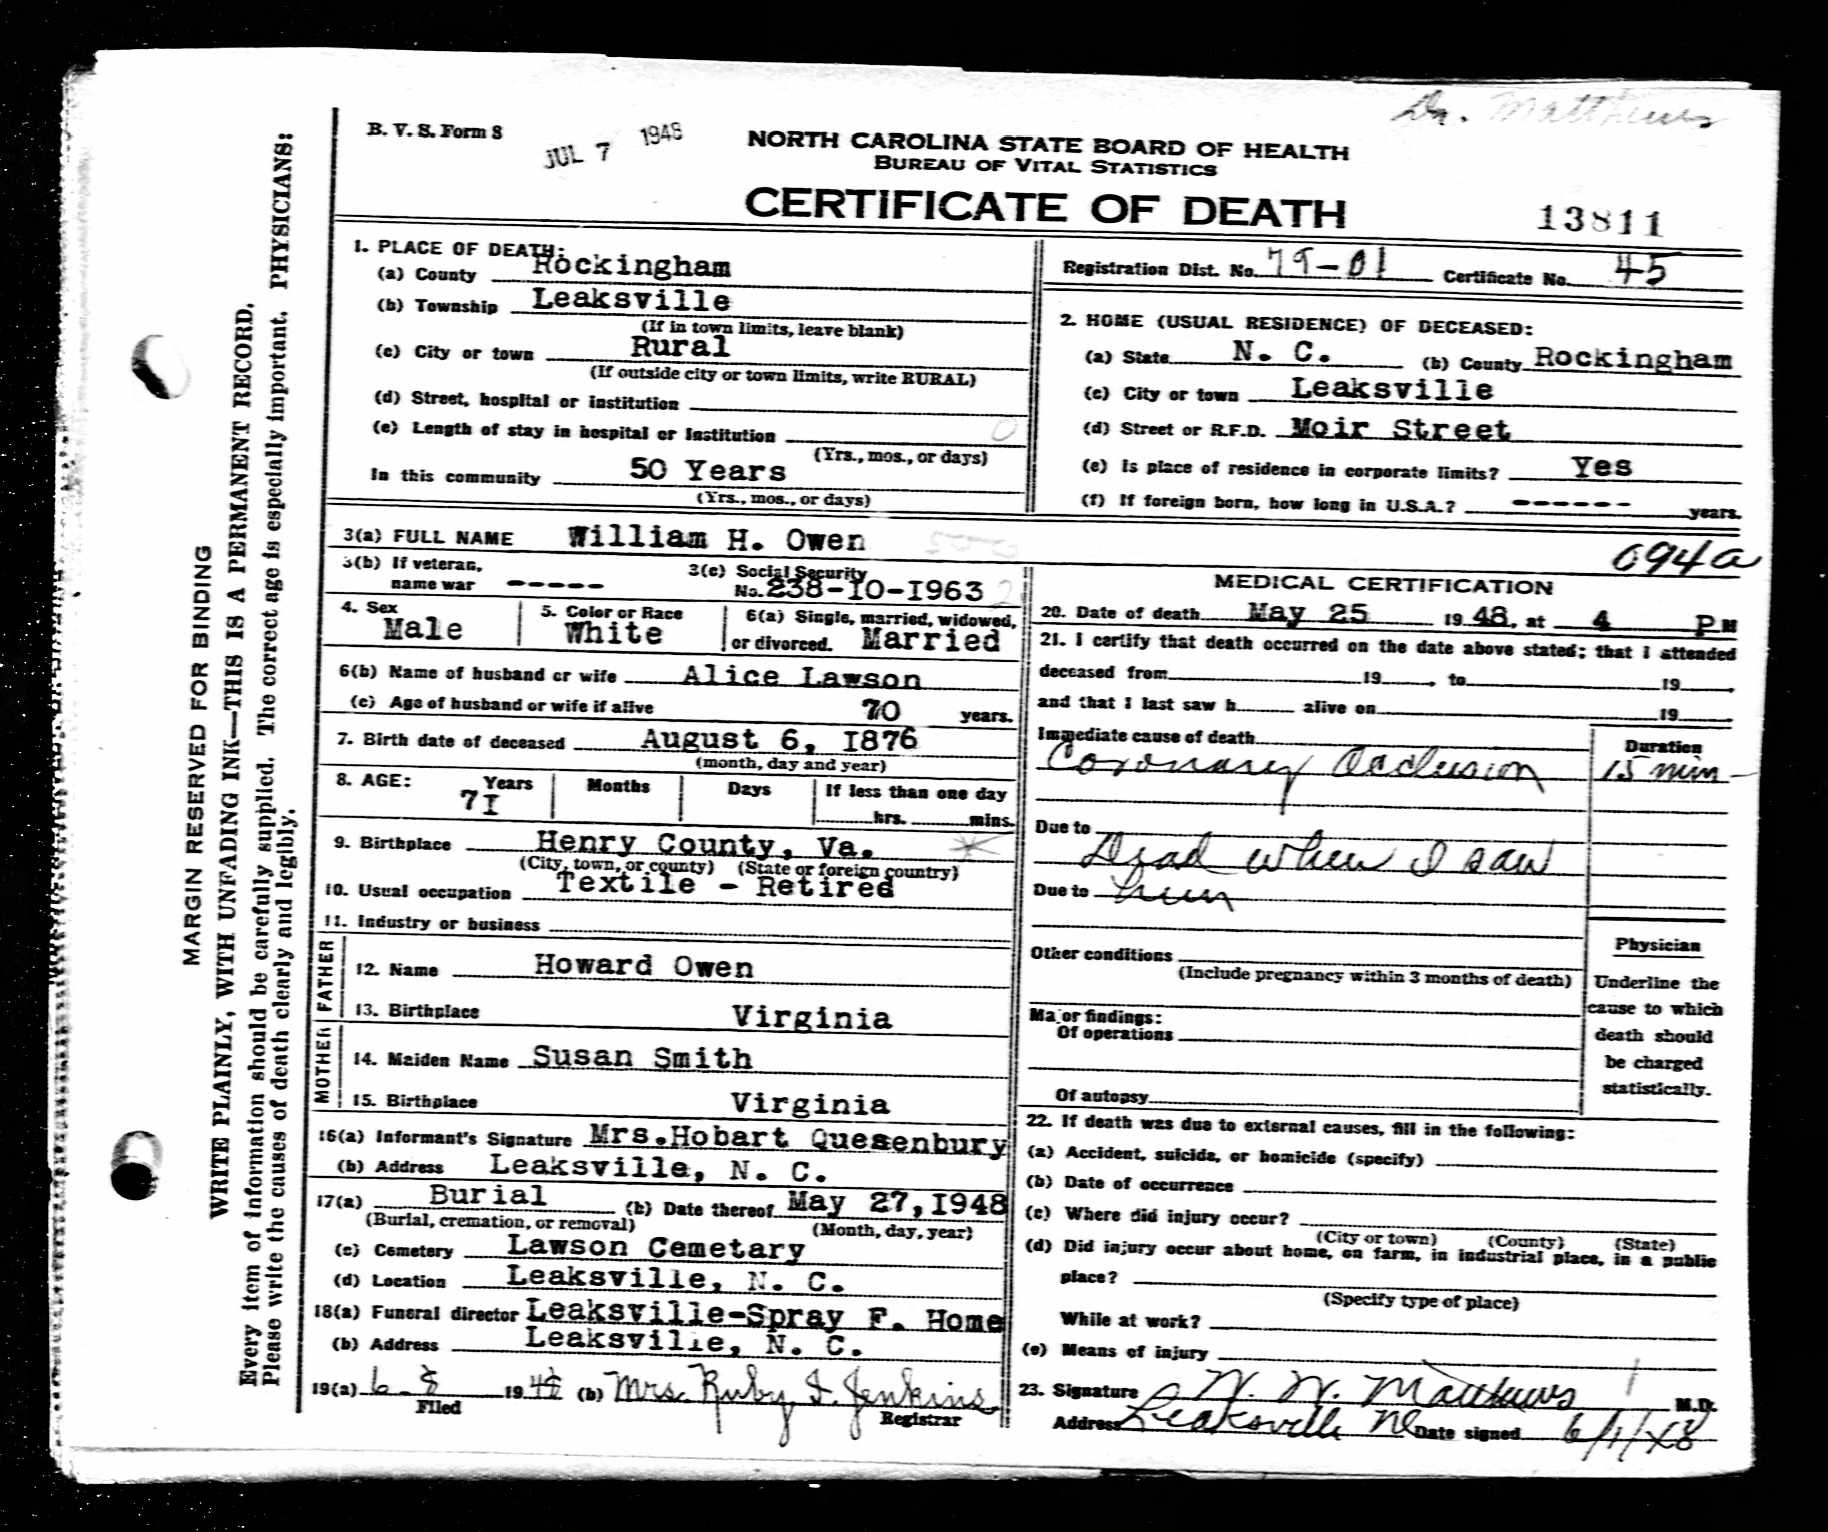 Dr. Matthews
B. V. S. Form 8
JUL 7 1948
NORTH CAROLINA STATE BOARD OF HEALTH
BUREAU OF VITAL STATISTICS
CERTIFICATE OF DEATH
13811
MARGIN RESERVED FOR BINDING
WRITE PLAINLY, WITH UNFADING INK—THIS IS A PERMANENT RECORD.
Every item of information should be carefully supplied. The correct age is especially important. PHYSICIANS:
Please write the causes of death clearly and legibly.
1. PLACE OF DEATH:
(a) County Rockingham
(b) Township Leaksville
(If in town limits, leave blank)
(c) City or town Rural
(If outside city or town limits, write RURAL)
(d) Street, hospital or institution
(e) Length of stay in hospital or institution 0
(Yrs., mos., or days)
In this community 50 Years
(Yrs., mos., or days)
Registration Dist. No. 79-01 Certificate No. 45
2. HOME (USUAL RESIDENCE) OF DECEASED:
(a) State N. C. (b) County Rockingham
(c) City or town Leaksville
(d) Street or R.F.D. Moir Street
(e) Is place of residence in corporate limits? Yes
(f) If foreign born, how long in U.S.A.? ------ years.
3(a) FULL NAME William H. Owen
094a
3(b) If veteran, name war -----
3(c) Social Security No. 238-10-1963
4. Sex Male
5. Color or Race White
6(a) Single, married, widowed, or divorced. Married
6(b) Name of husband or wife Alice Lawson
(c) Age of husband or wife if alive 70 years.
7. Birth date of deceased August 6, 1876
(month, day and year)
8. AGE: Years 71 Months Days If less than one day
hrs. mins.
9. Birthplace Henry County, Va.
(City, town, or county) (State or foreign country)
10. Usual occupation Textile - Retired
11. Industry or business
FATHER
12. Name Howard Owen
13. Birthplace Virginia
MOTHER
14. Maiden Name Susan Smith
15. Birthplace Virginia
16(a) Informant's Signature Mrs.Hobart Quesenbury
(b) Address Leaksville, N. C.
17(a) Burial (b) Date thereof May 27,1948
(Burial, cremation, or removal) (Month, day, year)
(c) Cemetery Lawson Cemetary
(d) Location Leaksville, N. C.
18(a) Funeral director Leaksville-Spray F. Home
(b) Address Leaksville, N. C.
19(a) 6-8 1948 (b) Mrs. Ruby I. Jenkins
Filed Registrar
MEDICAL CERTIFICATION
20. Date of death May 25 1948, at 4 P M
21. I certify that death occurred on the date above stated; that I attended
deceased from 19 , to 19 ,
and that I last saw h alive on 19
Immediate cause of death Duration
Coronary Occlusion 15 min
Due to
Dead when I saw
Due to him
Other conditions
(Include pregnancy within 3 months of death)
Major findings:
Of operations
Of autopsy
Physician
Underline the
cause to which
death should
be charged
statistically.
22. If death was due to external causes, fill in the following:
(a) Accident, suicide, or homicide (specify)
(b) Date of occurrence
(c) Where did injury occur?
(City or town) (County) (State)
(d) Did injury occur about home, on farm, in industrial place, in a public
place?
(Specify type of place)
While at work?
(e) Means of injury
23. Signature W. W. Matthews M.D.
Address Leaksville NC Date signed 6/1/48